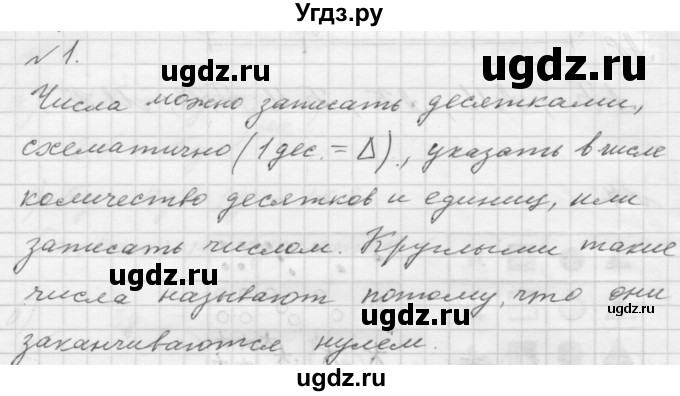 Угдз.ру
№1.
Числа можно записать десятками,
схематично (1 дес. = Δ)., указать в числе
количество десятков и единиц, или
записать числом. Круглыми такие
числа называют потому, что они
заканчиваются нулём.
ugdz.ru
ugdz.ru
ugdz.ru
ugdz.ru
ugdz.ru
ugdz.ru
ugdz.ru